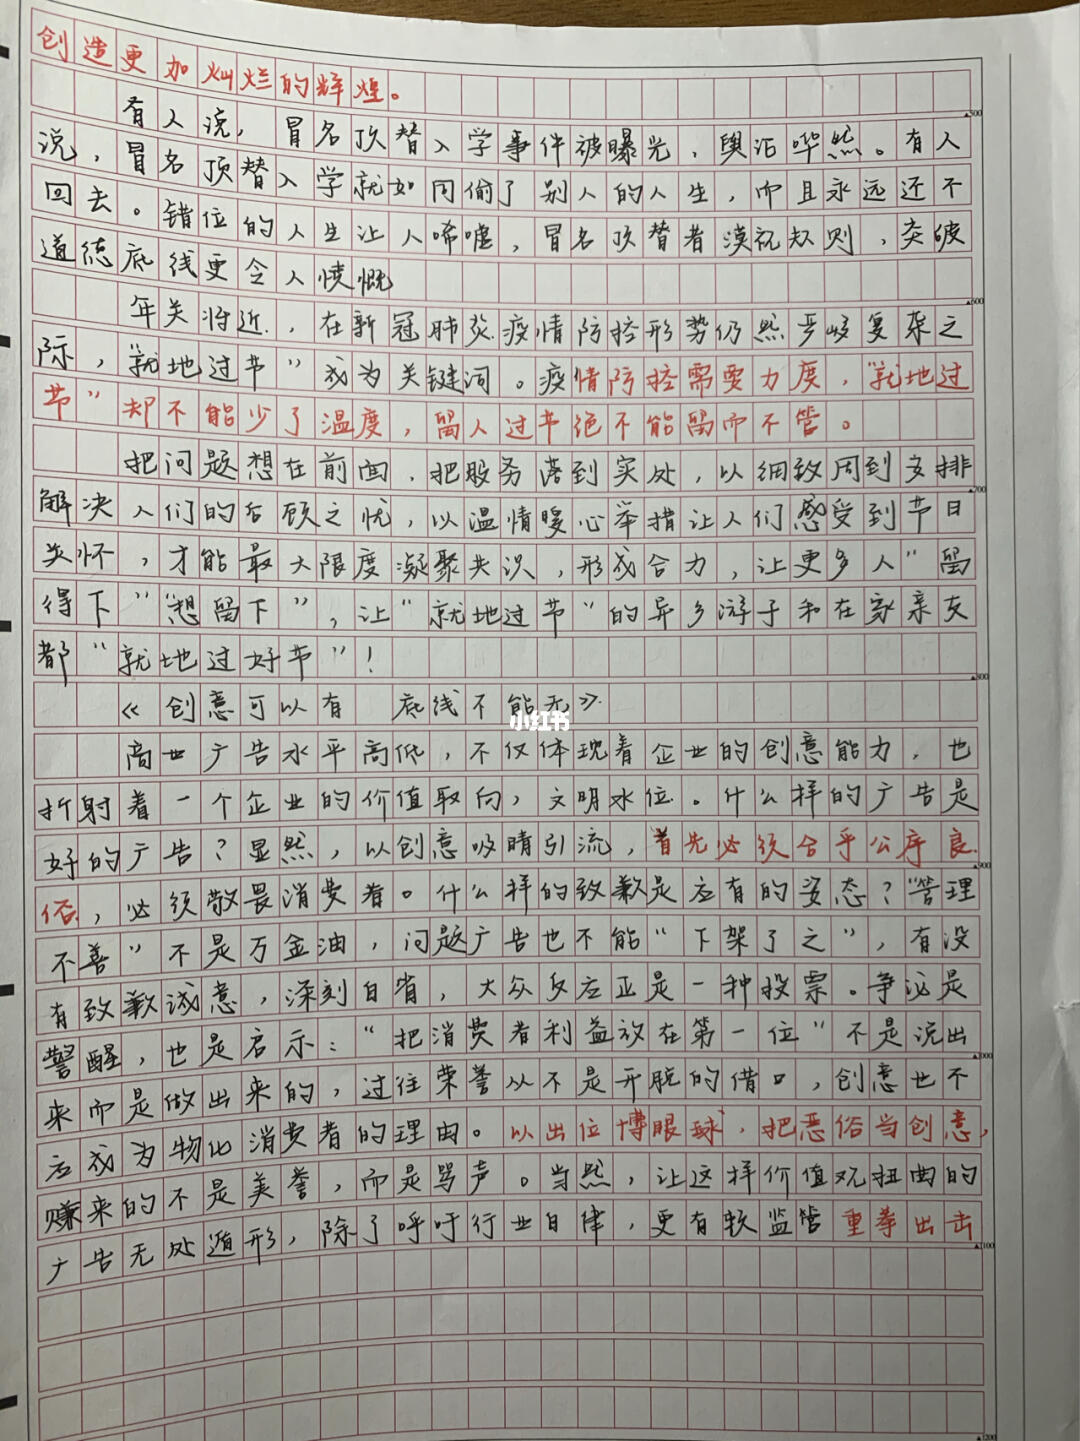 创造更加灿烂的辉煌。
有人说，冒名顶替入学事件被曝光，舆论哗然。有人
说，冒名顶替入学就如同偷了别人的人生，而且永远还不
回去。错位的人生让人唏嘘，冒名顶替者漠视规则，突破
道德底线更令人愤慨
年关将近，在新冠肺炎疫情防控形势仍然严峻复杂之
际，“就地过节”成为关键词。疫情防控需要力度，“就地过
节”却不能少了温度，留人过节绝不能留而不管。
把问题想在前面，把服务落到实处，以细致周到安排
解决人们的后顾之忧，以温情暖心举措让人们感受到节日
关怀，才能最大限度凝聚共识，形成合力，让更多人“留
得下”“想留下”，让“就地过节”的异乡游子和在家亲友
都“就地过好节”！
《创意可以有 底线不能无》
商业广告水平高低，不仅体现着企业的创意能力，也
折射着一个企业的价值取向，文明水位。什么样的广告是
好的广告？显然，以创意吸睛引流，首先必须合乎公序良
俗，必须敬畏消费者。什么样的致歉是应有的姿态？“管理
不善”不是万金油，问题广告也不能“下架了之”，有没
有致歉诚意，深刻自省，大众反应正是一种投票。争议是
警醒，也是启示：“把消费者利益放在第一位”不是说出
来而是做出来的，过往荣誉从不是开脱的借口，创意也不
应成为物化消费者的理由。以出位博眼球，把恶俗当创意，
赚来的不是美誉，而是骂声。当然，让这样价值观扭曲的
广告无处遁形，除了呼吁行业自律，更有软监管重拳出击
小红书
500
600
700
800
900
1000
1100
1200